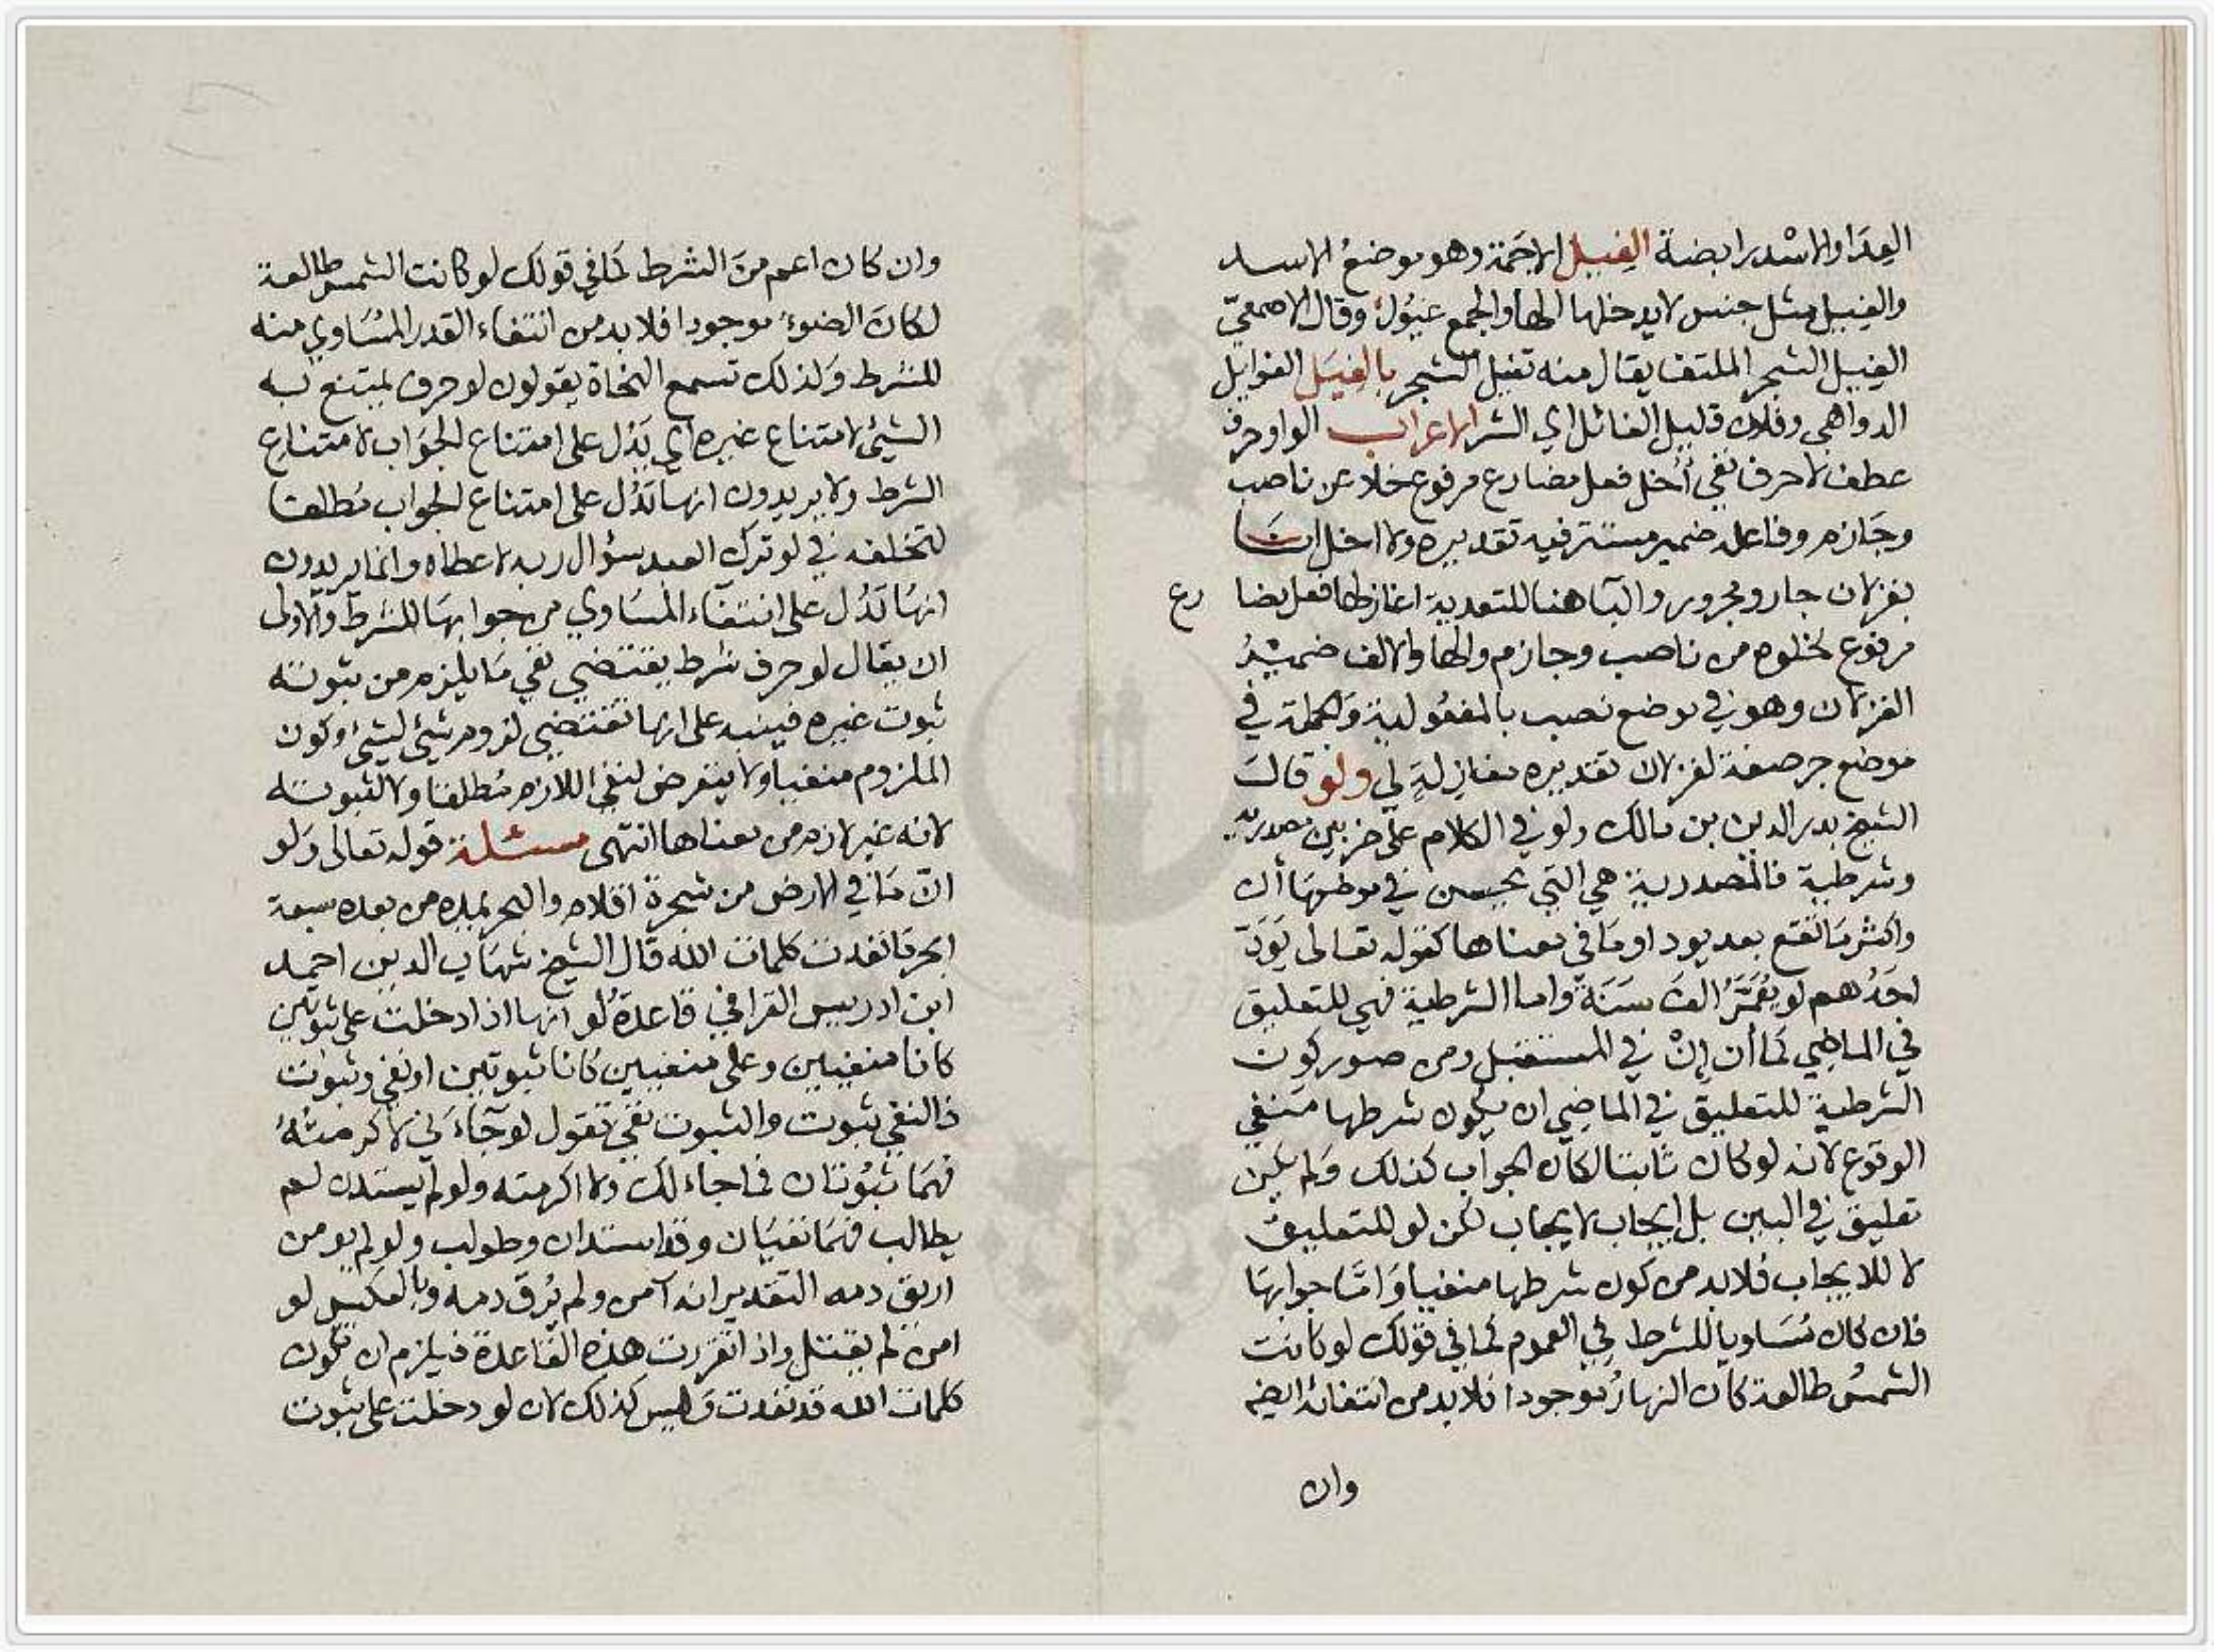 العدا والاسد رابضة الغيل الاجمة وهو موضع الاسد
والغيل مثل جنس لا يدخلها الها والجمع غيول وقال الاصمعي
الغيل الشجر الملتف يقال منه تغيل الشجر بالغيل الغوايل
الدواهي وفلان قليل الغائل اي الشر الاعراب الواو حرف
عطف لا حرف نفي أخل فعل مضارع مرفوع خلا عن ناصب
وجازم وفاعله ضمير مستتر فيه تقديره ولا اخل انا
بغزلان جار ومجرور والبا هنا للتعدية اغازلها فعل ايضا
رع
مرفوع لخلوه من ناصب وجازم والها والالف ضمير
الغزلان وهو في موضع نصب بالمفعولية والجملة في
موضع جر صفة لغزلان تقديره مغازلة لي ولو قال
الشيخ بدر الدين بن مالك ولو في الكلام على ضربين مصدرية
وشرطية فالمصدرية هي التي يحسن في موضعها أن
واكثر ما تقع بعد يود او ما في معناها كقوله تعالى يود
احدهم لو يعمر الف سنة واما الشرطية فهي للتعليق
في الماضي كما أن إن في المستقبل ومن صور كون
الشرطية للتعليق في الماضي ان يكون شرطها منتفي
الوقوع لانه لو كان ثابتا لكان الجواب كذلك ولم يكن
تعليق في البين بل ايجاب لايجاب لكن لو للتعليق
لا للايجاب فلا بد من كون شرطها منفيا واما جوابها
فان كان مساويا للشرط في العموم كما في قولك لو كانت
الشمس طالعة كان النهار موجودا فلا بد من انتفائه ايضا
وان
وان كان اعم من الشرط كما في قولك لو كانت الشمس طالعة
لكان الضوء موجودا فلا بد من انتفاء القدر المساوي منه
للشرط ولذلك تسمع النحاة يقولون لو حرف يمتنع به
الشيئ لامتناع غيره اي يدل على امتناع الجواب لامتناع
الشرط ولا يريدون انها تدل على امتناع الجواب مطلقا
لتخلفه في لو ترك العبد سؤال ربه لاعطاه وانما يريدون
انها تدل على انتفاء المساوي من جوابها للشرط والاولى
ان يقال لو حرف شرط يقتضي نفي ما يلزم من ثبوته
ثبوت غيره فينبه على انها تقتضي لزوم شيئ لشيئ وكون
الملزوم منفيا ولا يتعرض لنفي اللازم مطلقا ولا لثبوته
لانه غير لازم من معناها انتهى مسئلة قوله تعالى ولو
ان ما في الارض من شجرة اقلام والبحر يمده من بعده سبعة
ابحر ما نفدت كلمات الله قال الشيخ شهاب الدين احمد
ابن ادريس القرافي قاعدة لو انها اذا دخلت على ثبوتين
كانا منفيين وعلى منفيين كانا ثبوتين او نفي وثبوت
فالنفي ثبوت والثبوت نفي تقول لو جاءني لاكرمته
فهما ثبوتان فما جاءك ولا اكرمته ولو لم يستدن لم
يطالب فهما نفيان وقد استدان وطولب ولو لم يومن
اريق دمه التقدير انه آمن ولم يرق دمه وبالعكس لو
امن لم يقتل واذا تقررت هذه القاعدة فيلزم ان تكون
كلمات الله قد نفدت وليس كذلك لان لو دخلت على ثبوت